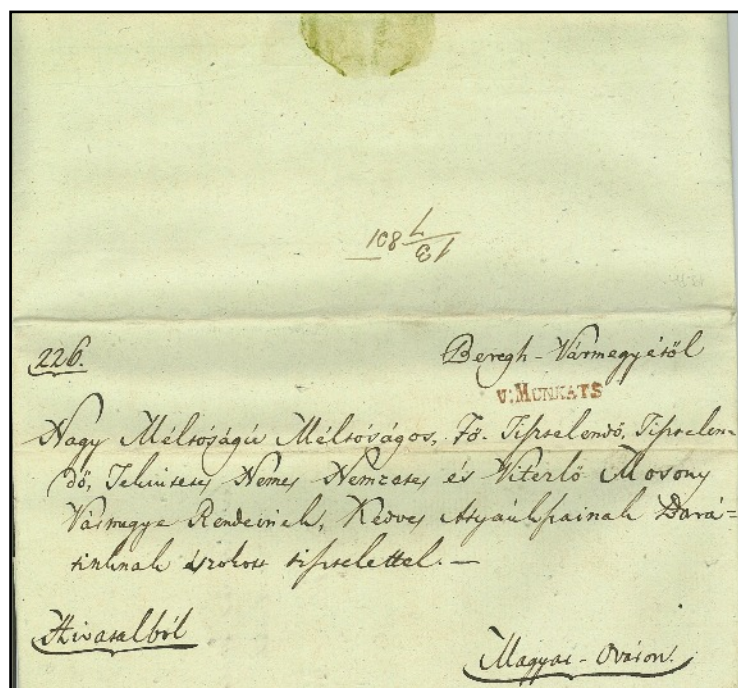 108
226.
Beregh-Vármegyétől
V:MUNKATS
Nagy Méltóságú Méltóságos, Fő-Tisztelendő, Tisztelen-
dő, Tekintetes Nemes Nemzetes és Vitézlő Mosony
Vármegye Rendeinek, Kedves Atyánkfiainak Bará-
tinknak szokott tisztelettel.—
Hivatalból
Magyar-Ováron.